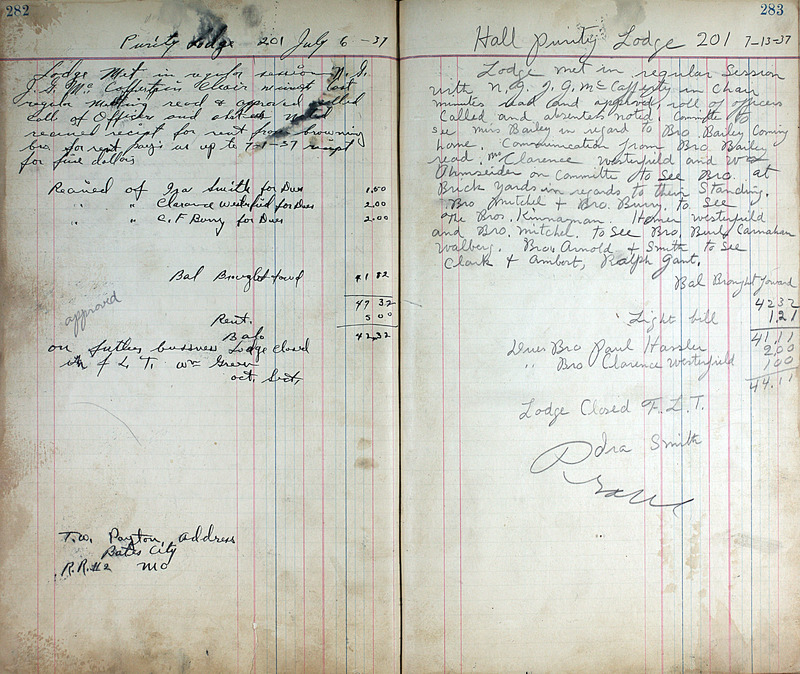 282
Purity Lodge 201 July 6 - 37
Lodge Met in regular session N. G.
J. G. Mc Cafferty in Chair minuts last
regular Meeting read & aproved called
Roll of Officer and abstees noted
received receipt for rent from browning
bro for rent pays us up to 7-1-37 receipt
for five dollars
Received of Ira Smith for Dues 1.00
" " Clarence Westerfield for Dues 2.00
" " C. F. Burry for Dues 2.00
Bal Brought forwd 41 82
approved
47 32
Rent. 5 00
Bafo 42.32
on futher bussness Lodge closed
in F L T. Wm Green
act. Sect,
T. W. Payton, address
Bates City
R.R.#2 Mo
283
Hall Purity Lodge 201 7-13-37
Lodge met in regular Session
with N. G. J. G. Mc Cafferty in Chair
minutes read and approved, roll of officers
Called and absentes noted. Committe to
see Miss Bailey in regard to Bro. Bailey Coming
home. Communication from Bro Bailey
read. Clarence Westerfield and
on Committe to See Bro. at
Brick Yards in regards to their Standing.
Bro Mitchel & Bro. Burry. to See
the Bros. Kinnaman. Homer Westerfield
and Bro. Mitchel. to See Bro. Burk Carnahan
Walberg. Bro. Arnold & Smith to See
Clark & Ambort, Ralph Gant.
Bal Brought Forward
42 32
Light bill 1.21
41.11
Dues Bro Paul Hassler 2.00
" Bro Clarence Westerfield 1.00
44.11
Lodge Closed F. L. T.
Ira Smith